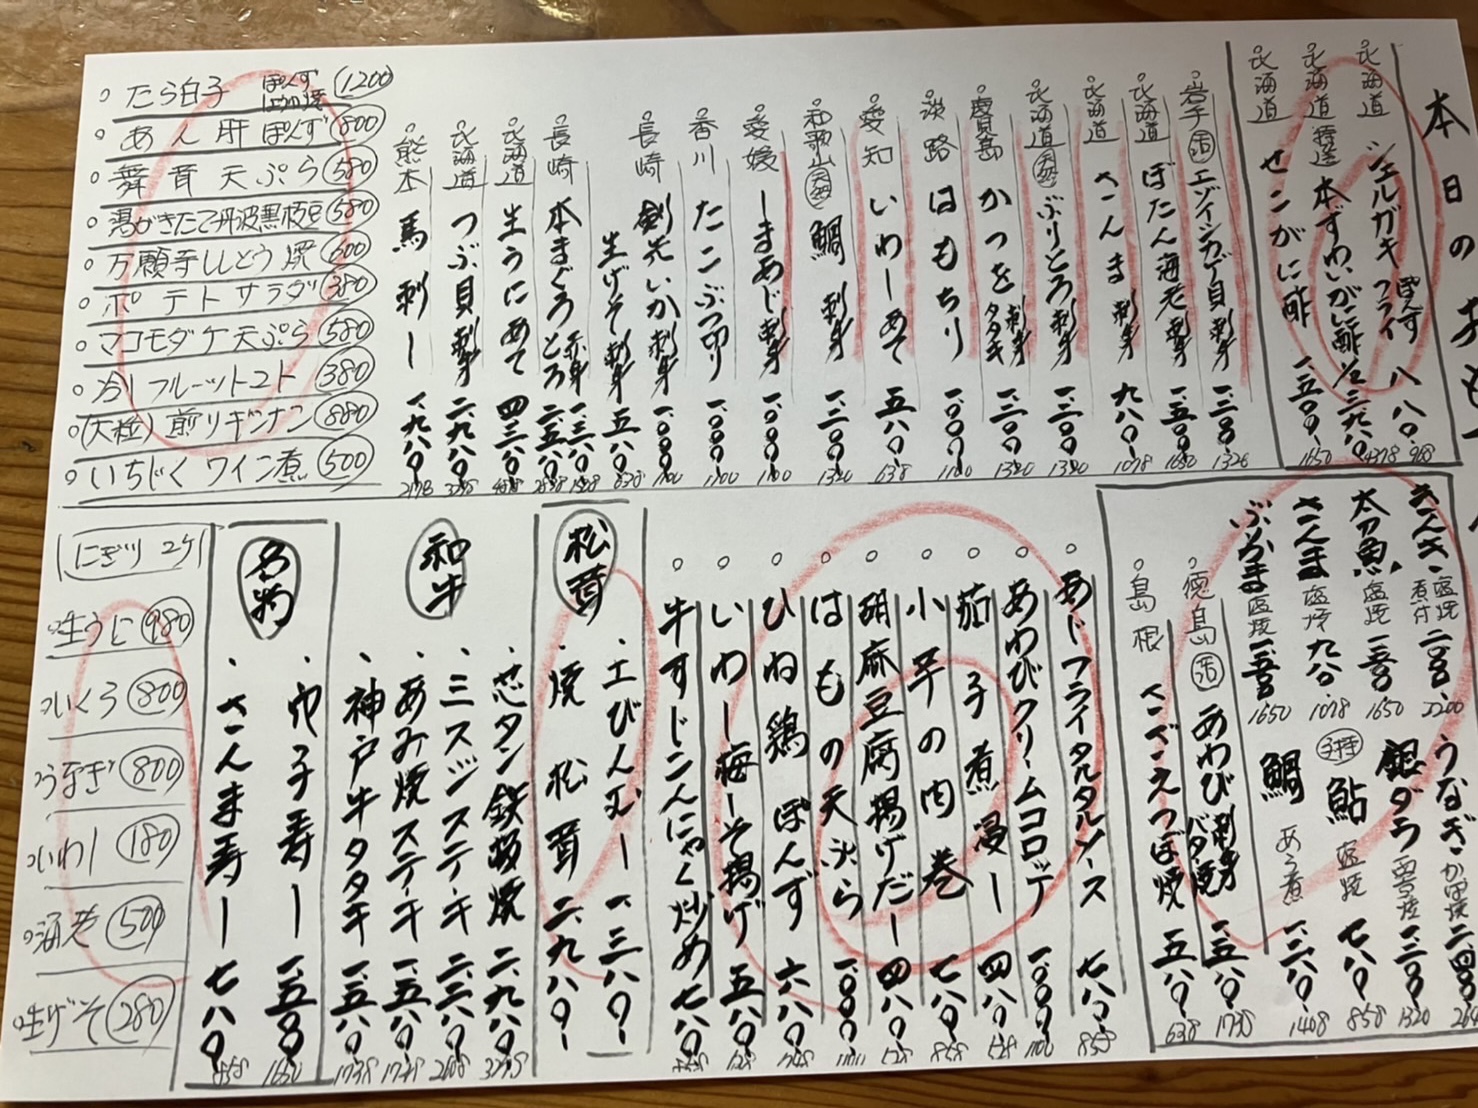 本日の
北海道 シェルガキ ぽんず フライ 八八〇 968
北海道 本ずわいがに酢
北海道 せこがに酢 一、五〇〇 1650
岩手 活 エゾイシカゲ貝 刺身 一、二〇〇 1320
北海道 ぼたん海老 刺身 一、五〇〇 1650
北海道 さんま 刺身 九八〇 1078
北海道 天然 ぶりとろ 刺身 一、二〇〇 1320
かつを 刺身 タタキ 一、二〇〇 1320
淡路 はもちり 一、〇〇〇 1100
愛知 いわしあて 五八〇 638
和歌山 天然 鯛 刺身 一、二〇〇 1320
愛媛 しまあじ 刺身 一、〇〇〇 1100
香川 たこぶつ切り 一、〇〇〇 1100
長崎 剣先いか 刺身 一、〇〇〇 1100
生げそ 刺身 五八〇 638
長崎 本まぐろ 赤身 一、三八〇 とろ 二、五八〇
北海道 生うにあて
北海道 つぶ貝 刺身 二、九八〇 3278
熊本 馬刺し 一、九八〇 2178
たら白子 ぽんず 1200
あん肝 ぽんず 800
舞茸天ぷら 580
湯がきたて丹波黒枝豆 580
万願寺ししとう焼 600
ポテトサラダ 380
マコモダケ天ぷら 580
冷しフルーツトマト 380
(大粒)煎りギンナン 880
いちじくワイン煮 500
きんき 塩焼 煮付 二、〇〇〇 2200
太刀魚 塩焼 一、五〇〇 1650
さんま 塩焼 九八〇 1078
ぶりかま 塩焼 一、五〇〇 1650
うなぎ かば焼 二、四〇〇
銀ダラ 西京焼 一、二〇〇 1320
子持 鮎 塩焼 七八〇 858
鯛 あら煮 一、二八〇 1408
徳島 活 あわび 刺身 バター焼 一、五八〇 1738
島根 さざえつぼ焼 五八〇 638
あじフライタルタルソース 七八〇 858
あわびクリームコロッケ 一、〇〇〇 1100
茄子煮浸し 四八〇 528
小芋の肉巻 七八〇 858
胡麻豆腐揚げだし 四八〇 528
はもの天ぷら
ひね鶏ぽんず 六八〇 748
いわし梅しそ揚げ 五八〇
牛すじこんにゃく炒め 七八〇 858
松茸
土びんむし 一、三八〇
焼松茸 二、九八〇
和牛
芯タン鉄板焼 二、九八〇 3278
三スジステーキ
あみ焼ステーキ 一、五八〇 1738
神戸牛タタキ 一、五八〇 1738
名物
穴子寿し 一、五〇〇 1650
さんま寿し 七八〇 858
にぎり 2ケ
生うに 980
いくら 800
うなぎ 800
いわし 180
海老 500
生げそ 280